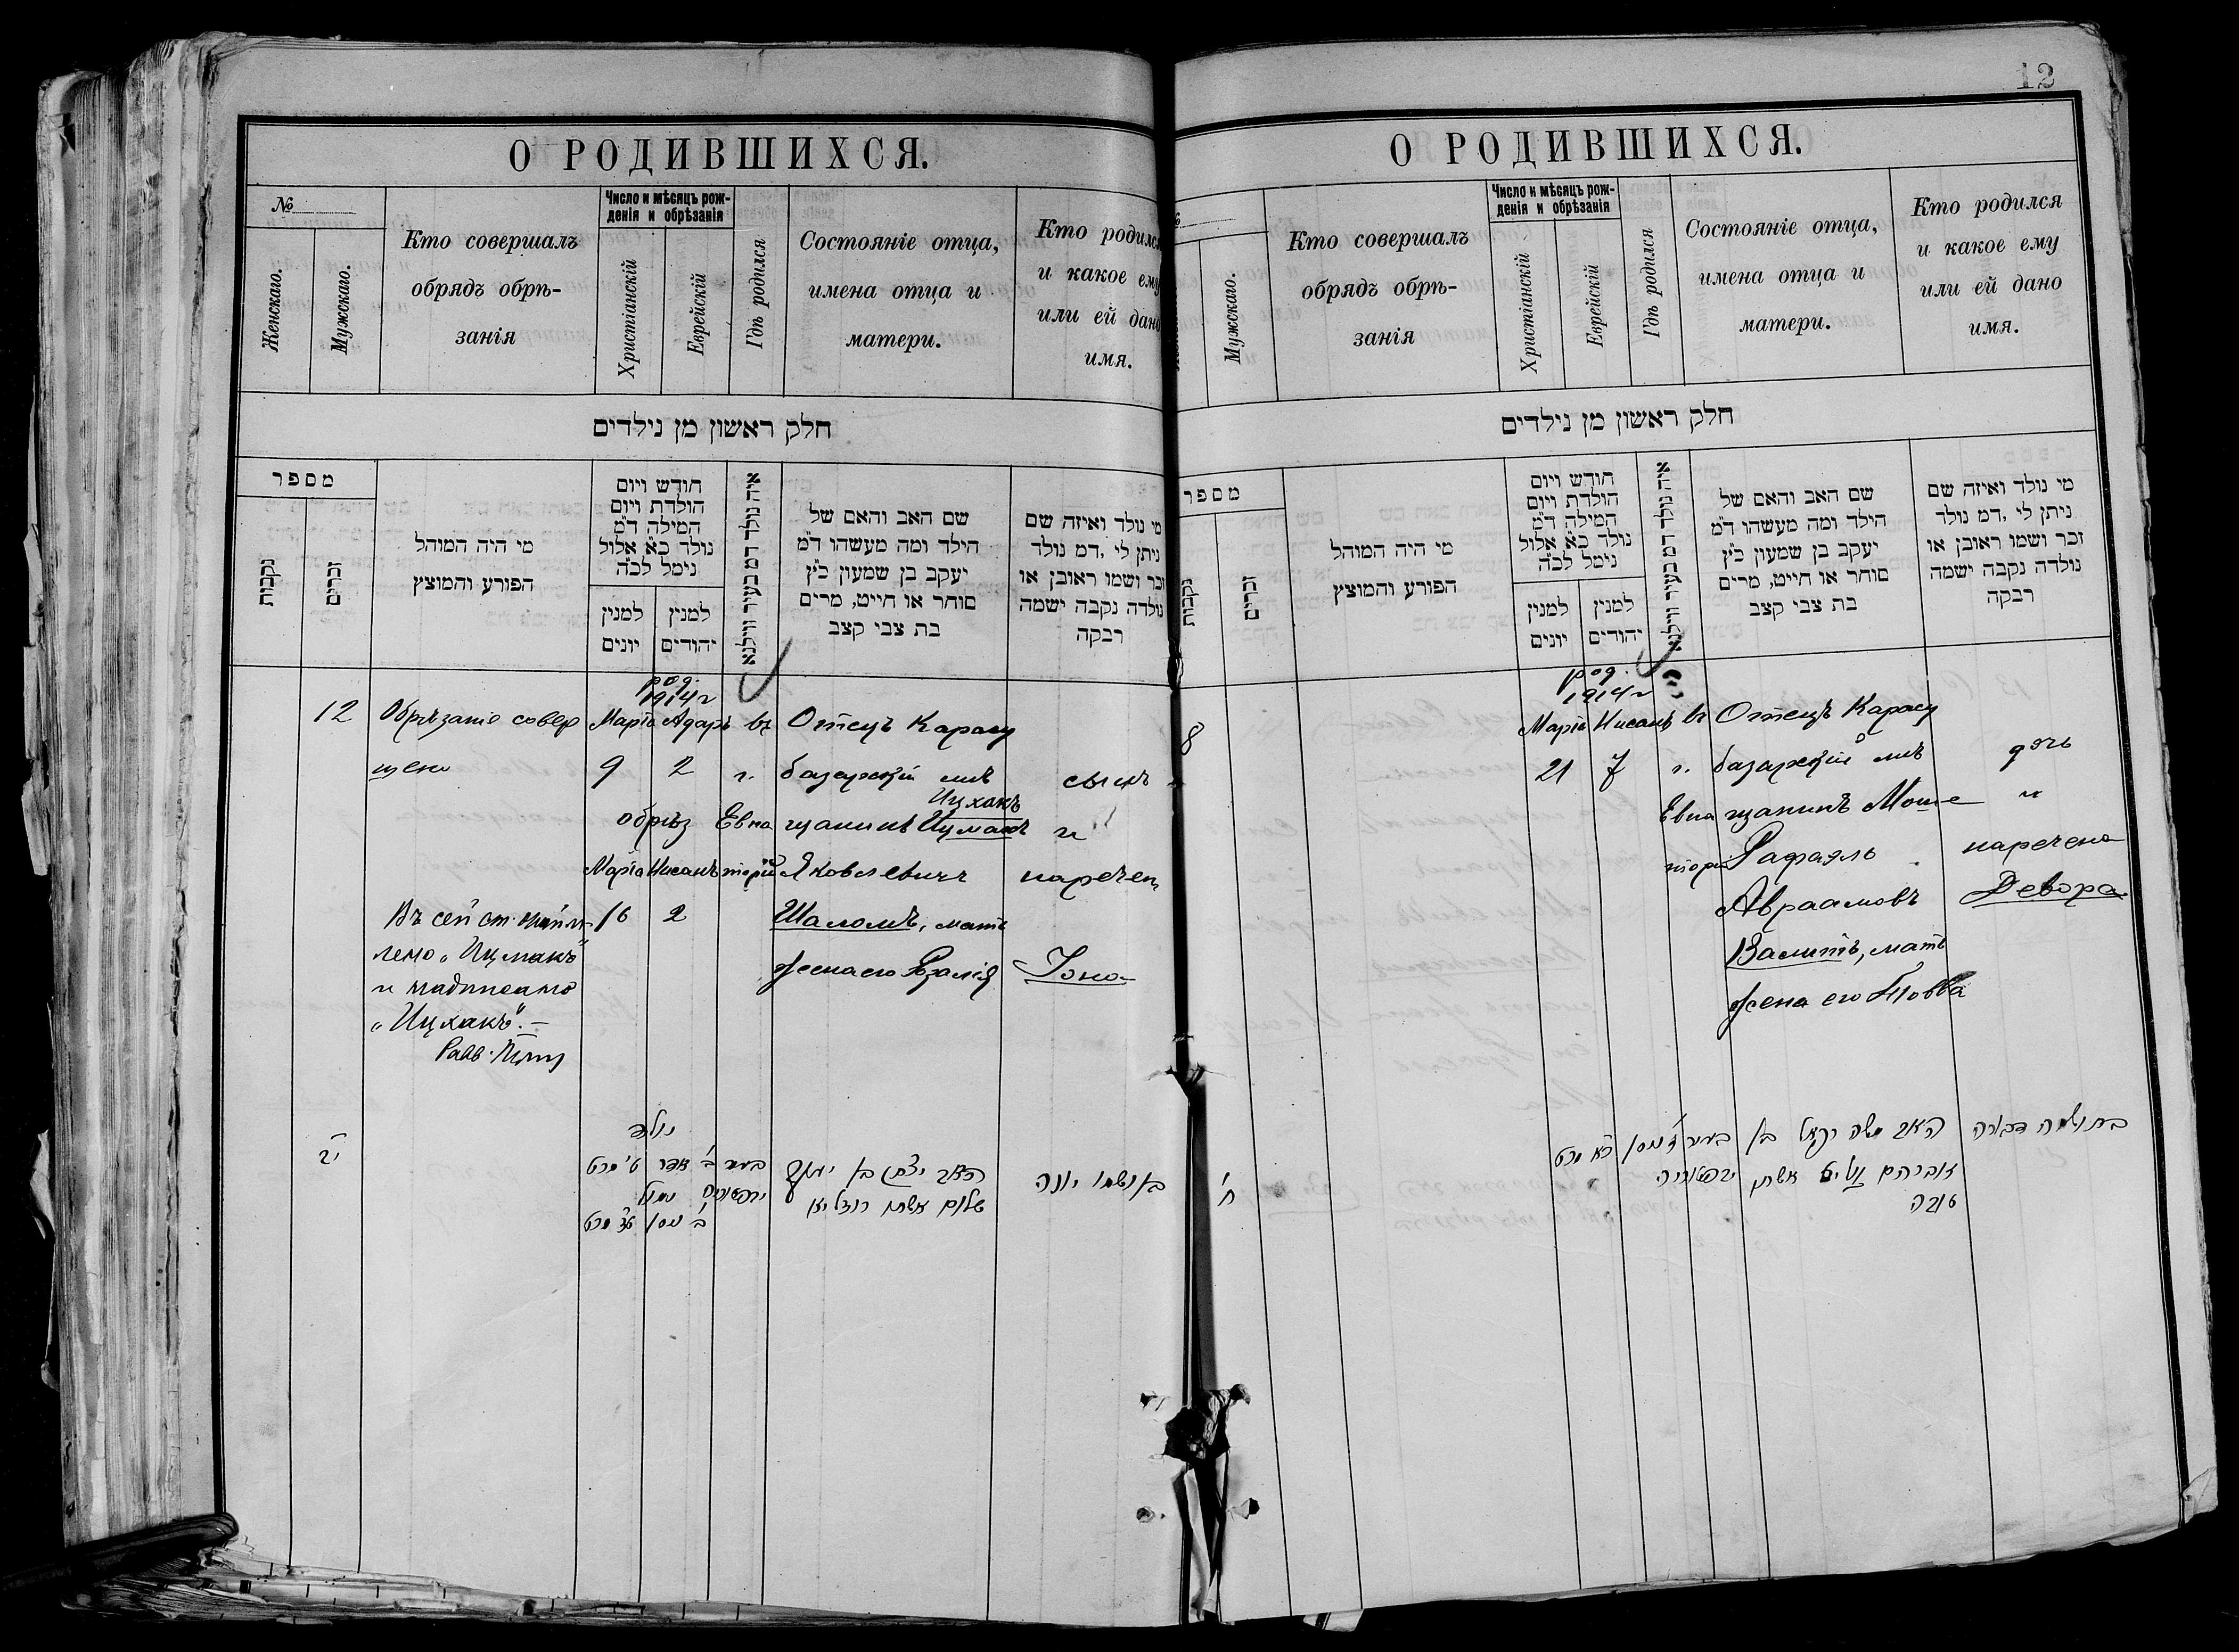 О РОДИВШИХСЯ.
№
Женскаго.
Мужскаго.
Кто совершалъ
обрядъ обрѣ-
занія
Число и мѣсяцъ рож-
денія и обрѣзанія
Христіанскій
Еврейскій
Гдѣ родился
Состояніе отца,
имена отца и
матери.
Кто родился
и какое ему
или ей дано
имя.
חלק ראשון מן נילדים
מספר
נקבות
זכרים
מי היה המוהל
הפורע והמוצץ
חודש ויום
הולדת ויום
המילה ד״מ
נולד כ״א אלול
נימל לכ״ה
למנין
יונים
למנין
יהודים
איה נולד דמ בעיר ווילנא
שם האב והאם של
הילד ומה מעשהו ד״מ
יעקב בן שמעון כ״ץ
סוחר או חייט, מרים
בת צבי קצב
מי נולד ואיזה שם
ניתן לי, דמ נולד
זכר ושמו ראובן או
נולדה נקבה ישמה
רבקה
12
Обрѣзаніе совер
шено
род.
1914 г
Мартъ Адаръ
9 2
обрѣз
Мартъ Нисанъ
16 2
въ
г.
Евпа
торіи
Отецъ Карасу
базарскій мѣ
Ицхакъ
щанинъ Ицмакъ
Яковлевичъ
Шаломъ, мать
жена его Розалія
сынъ
и
нареченъ
Іона
Въ сей ст.
лено „Ицмакъ“
и надписано
„Ицхакъ“. —
Равв.
י״ב
נולד
ב׳ אדר ט׳ מרט
נימול
ב׳ ניסן ט״ז מרט
בעיר
יבפטוריה
האב יצחק בן יעקב
שלום אשתו רוזליא
בן ושמו יונה
12
О РОДИВШИХСЯ.
Мужскаго.
Кто совершалъ
обрядъ обрѣ-
занія
Число и мѣсяцъ рож-
денія и обрѣзанія
Христіанскій
Еврейскій
Гдѣ родился
Состояніе отца,
имена отца и
матери.
Кто родился
и какое ему
или ей дано
имя.
חלק ראשון מן נילדים
מספר
נקבות
זכרים
מי היה המוהל
הפורע והמוצץ
חודש ויום
הולדת ויום
המילה ד״מ
נולד כ״א אלול
נימל לכ״ה
למנין
יונים
למנין
יהודים
איה נולד דמ בעיר ווילנא
שם האב והאם של
הילד ומה מעשהו ד״מ
יעקב בן שמעון כ״ץ
סוחר או חייט, מרים
בת צבי קצב
מי נולד ואיזה שם
ניתן לי, דמ נולד
זכר ושמו ראובן או
נולדה נקבה ישמה
רבקה
8
род.
1914 г
Мартъ Нисанъ
21 7
въ
г.
Евпа
торіи
Отецъ Карасу
базарскій мѣ
щанинъ Моше
Рафаэль
Авраамовъ
Валитъ, мать
жена его Товва
дочь
и
наречена
Девора
ח׳
ז׳ ניסן כ״א מרט
בעיר
יבפטוריה
האב משה רפאל בן
אברהם וליט אשתו
טובה
בת ושמה דבורה